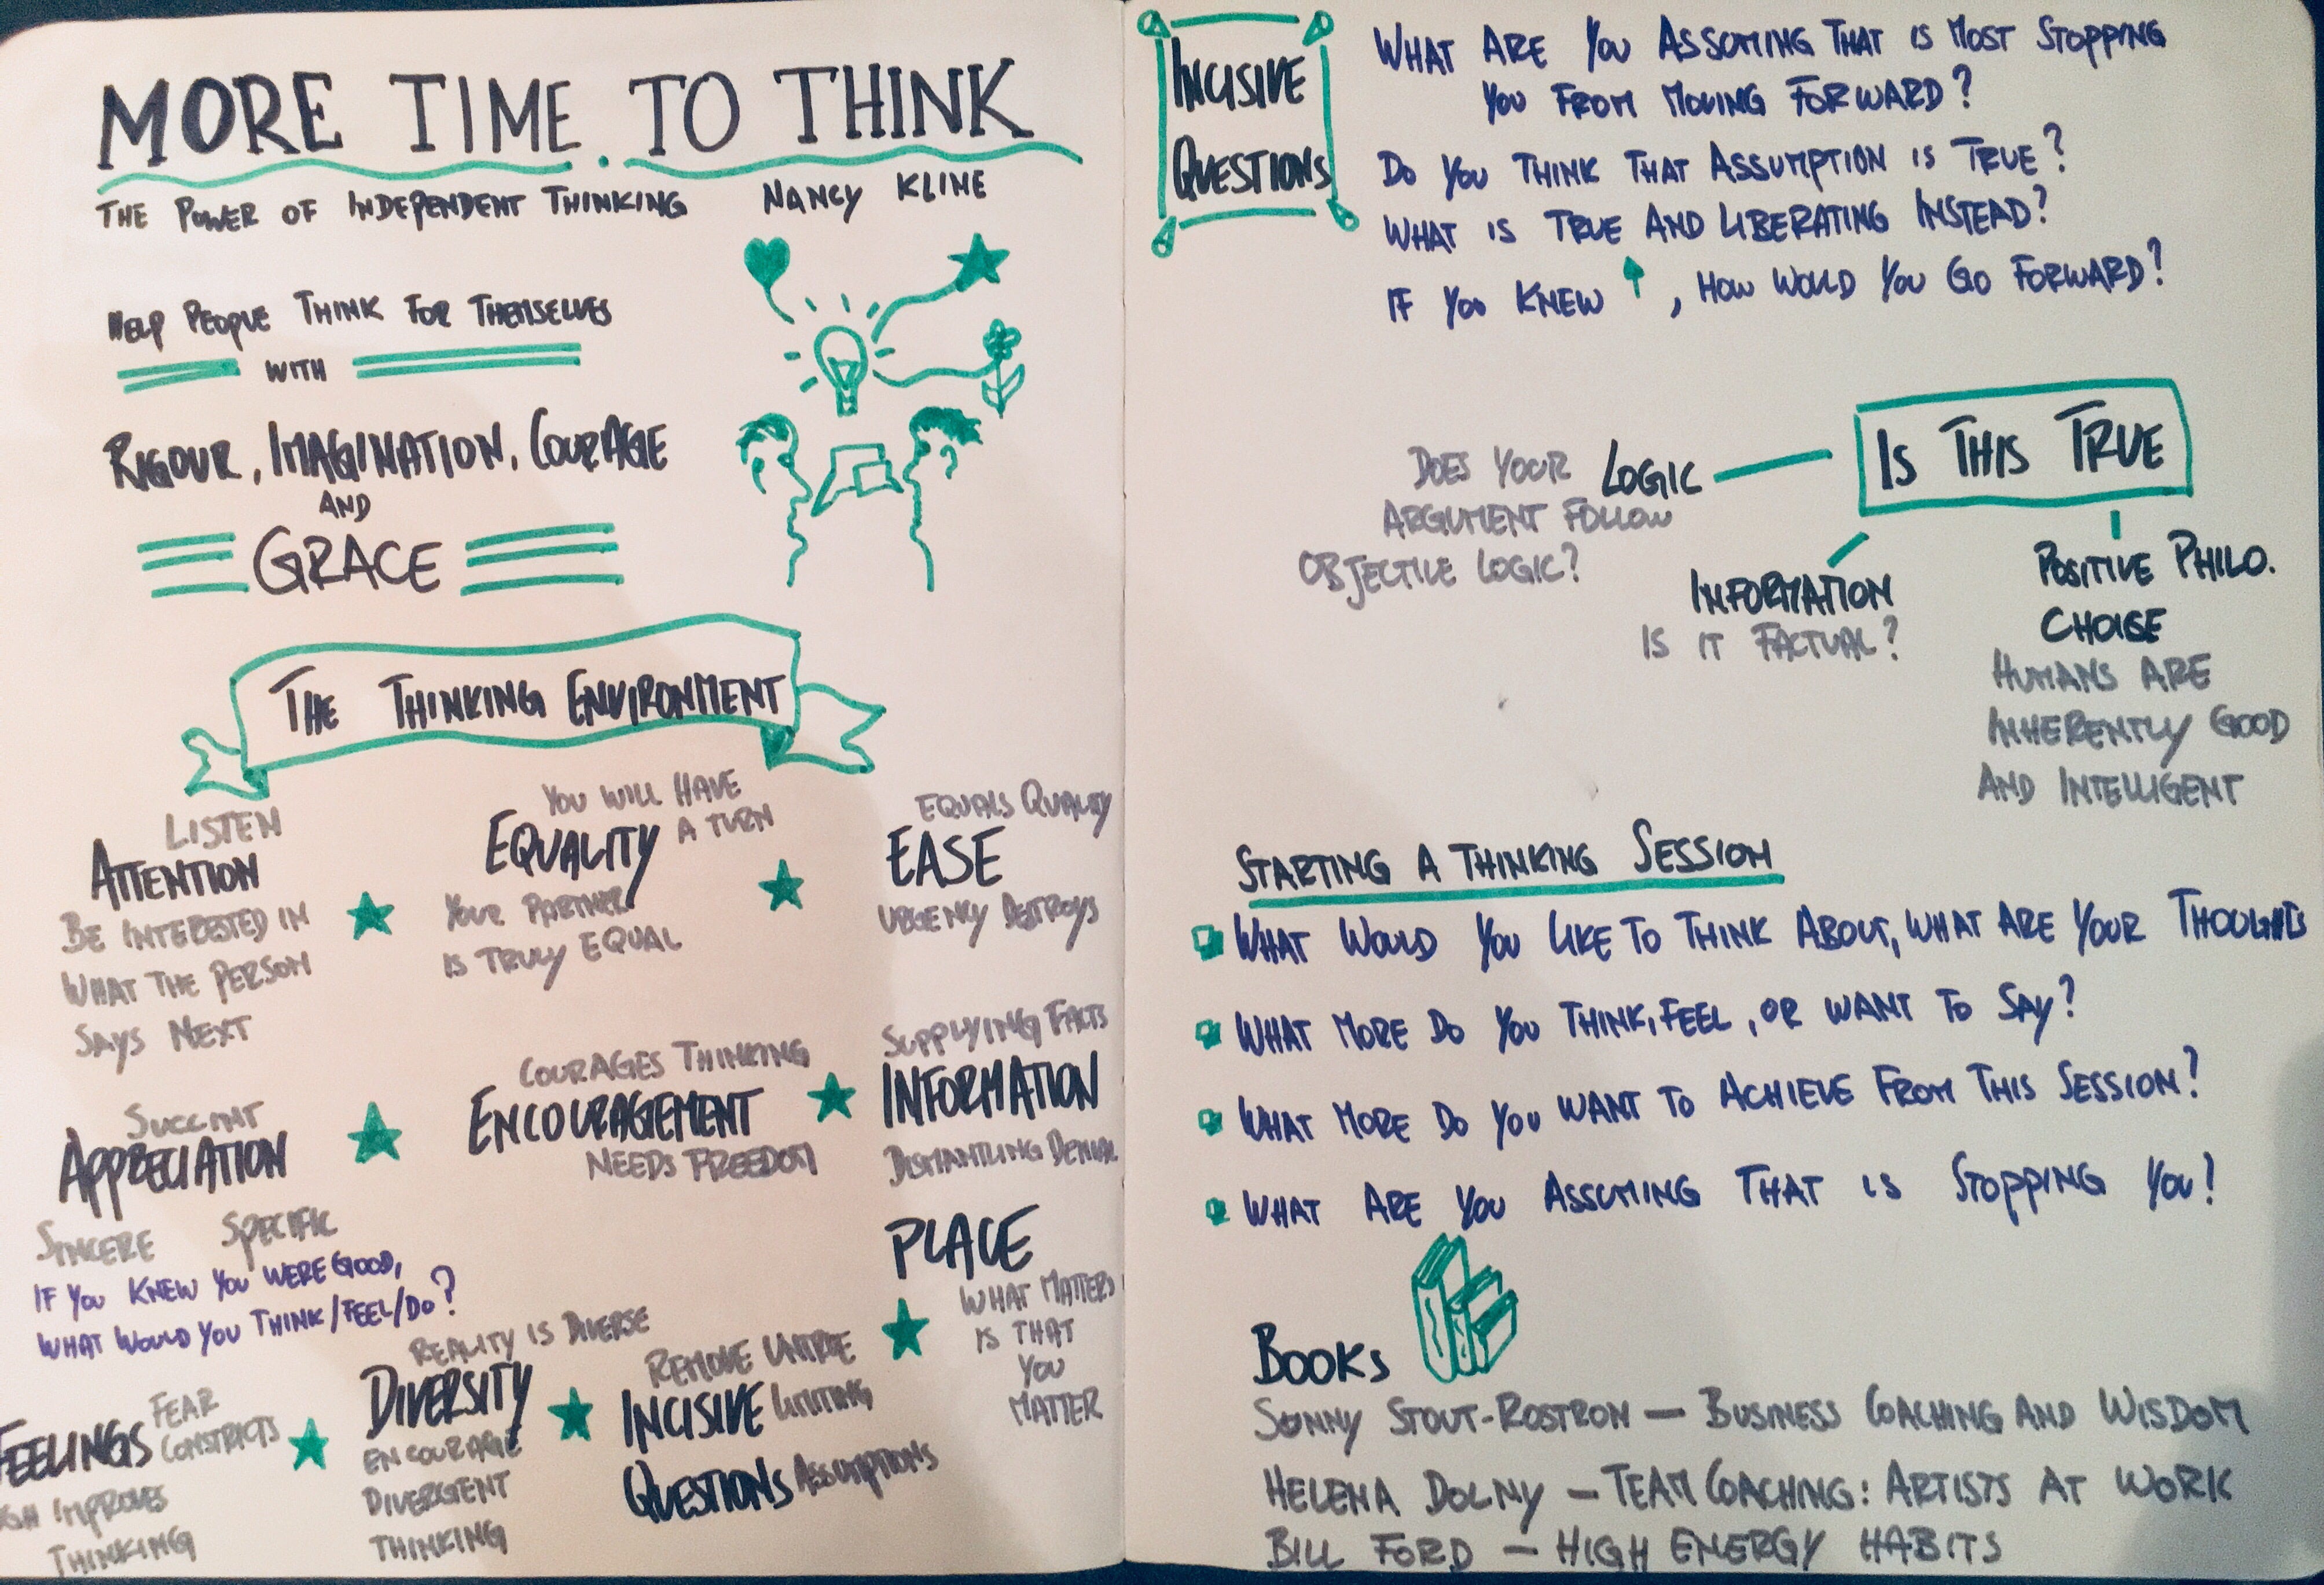 MORE TIME TO THINK
THE POWER OF INDEPENDENT THINKING NANCY KLINE
HELP PEOPLE THINK FOR THEMSELVES
WITH
RIGOUR, IMAGINATION, COURAGE
AND
GRACE
THE THINKING ENVIRONMENT
LISTEN
ATTENTION
BE INTERESTED IN
WHAT THE PERSON
SAYS NEXT
YOU WILL HAVE
A TURN
EQUALITY
YOUR PARTNER
IS TRULY EQUAL
EQUALS QUALITY
EASE
URGENCY DESTROYS
SUCCINT
APPRECIATION
SINCERE SPECIFIC
IF YOU KNEW YOU WERE GOOD,
WHAT WOULD YOU THINK/FEEL/DO?
COURAGES THINKING
ENCOURAGEMENT
NEEDS FREEDOM
SUPPLYING FACTS
INFORMATION
DISMANTLING DENIAL
PLACE
WHAT MATTERS
IS THAT
YOU
MATTER
FEELINGS
FEAR
CONSTRICTS
IMPROVES
THINKING
REALITY IS DIVERSE
DIVERSITY
ENCOURAGE
DIVERGENT
THINKING
REMOVE UNTRUE
INCISIVE LIMITING
QUESTIONS ASSUMPTIONS
INCISIVE
QUESTIONS
WHAT ARE YOU ASSUMING THAT IS MOST STOPPING
YOU FROM MOVING FORWARD?
DO YOU THINK THAT ASSUMPTION IS TRUE?
WHAT IS TRUE AND LIBERATING INSTEAD?
IF YOU KNEW ↑, HOW WOULD YOU GO FORWARD?
IS THIS TRUE
LOGIC
DOES YOUR
ARGUMENT FOLLOW
OBJECTIVE LOGIC?
INFORMATION
IS IT FACTUAL?
POSITIVE PHILO.
CHOISE
HUMANS ARE
INHERENTLY GOOD
AND INTELLIGENT
STARTING A THINKING SESSION
WHAT WOULD YOU LIKE TO THINK ABOUT, WHAT ARE YOUR THOUGHTS
WHAT MORE DO YOU THINK, FEEL, OR WANT TO SAY?
WHAT MORE DO YOU WANT TO ACHIEVE FROM THIS SESSION?
WHAT ARE YOU ASSUMING THAT IS STOPPING YOU?
BOOKS
SUNNY STOUT-ROSTRON — BUSINESS COACHING AND WISDOM
HELENA DOLNY — TEAM COACHING: ARTISTS AT WORK
BILL FORD — HIGH ENERGY HABITS